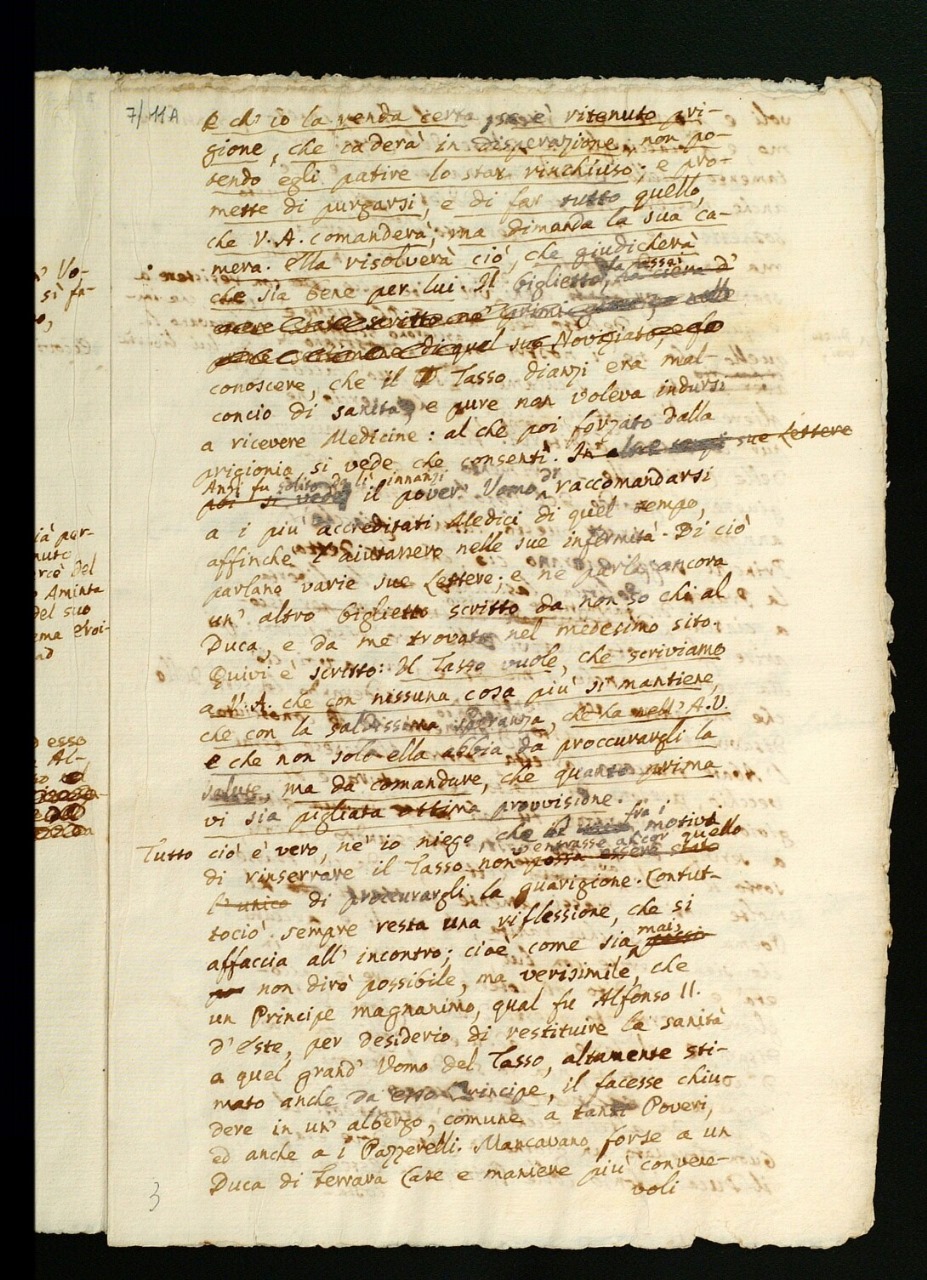 7/11A
e ch' io la renda certa, se è ritenuto pri-
gione, che caderà in disperazione, non po-
tendo egli patire lo star rinchiuso; e pro-
mette di purgarsi, e di far tutto quello,
che V. A. comanderà; ma dimanda la sua ca-
mera. Ella risolverà ciò, che giudicherà
che sia bene per lui. Il biglietto,
scritto ne' primi
di quel suo Noviziato,
conoscere, che il Tasso dianzi era mal-
concio di sanità, e pure non voleva indursi
a ricevere Medicine: al che poi forzato dalla
prigionia si vede che consentì. sue Lettere
Anzi fu solito da lì innanzi
poi si vede il pover' Uomo di raccomandarsi
a i più accreditati Medici di quel tempo,
affinchè l' aiutassero nelle sue infermità. Di ciò
parlano varie sue Lettere; e ne parla ancora
un' altro biglietto scritto da non so chi al
Duca, e da me trovato nel medesimo sito.
Quivi è scritto: Il Tasso vuole, che scriviamo
a V. A. che con nissuna cosa più si mantiene,
che con la saldissima speranza, che ha nell' A. V.
e che non solo ella abbia da proccurargli la
salute, ma da comandare, che quanto prima
vi sia pigliata ottima provvisione.
Tutto ciò è vero, nè io niego, che fra i motivi
di rinserrare il Tasso non v' entrasse ancor quello
possa essere stato
l' unico di proccurargli la guarigione. Contut-
tociò sempre resta una riflessione, che si
affaccia all' incontro; cioè come sia mai
non dirò possibile, ma verisimile, che
un Principe magnanimo, qual fu Alfonso II.
d' Este, per desiderio di restituire la sanità
a quel grand' Uomo del Tasso, altamente sti-
mato anche da esso Principe, il facesse chiu
dere in un' albergo, comune a tanti Poveri,
ed anche a i Pazzerelli. Mancavano forse a un
Duca di Ferrara Case e maniere più convene-
voli
3
Vo-
sì fa-
o,
ià por-
nuto
rcè del
o Aminta
del suo
ema Eroi-
ad
esso
Al-